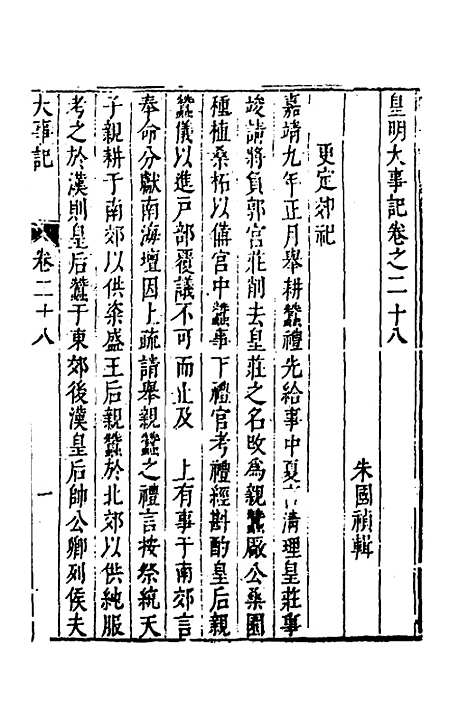 皇明大事記卷之二十八
朱國禎輯
更定郊祀
嘉靖九年正月舉耕蠶禮先給事中夏言清理皇莊事
竣請將負郭宮莊削去皇莊之名改為親蠶厰公桑園
種植桑柘以備宮中蠶事下禮官考禮經斟酌皇后親
蠶儀以進戶部覆議不可而止及 上有事于南郊言
奉命分獻南海壇因上疏請舉親蠶之禮言按祭統天
子親耕于南郊以供粢盛王后親蠶於北郊以供純服
考之於漢則皇后蠶于東郊後漢皇后帥公卿列侯夫
大事記 卷二十八 一